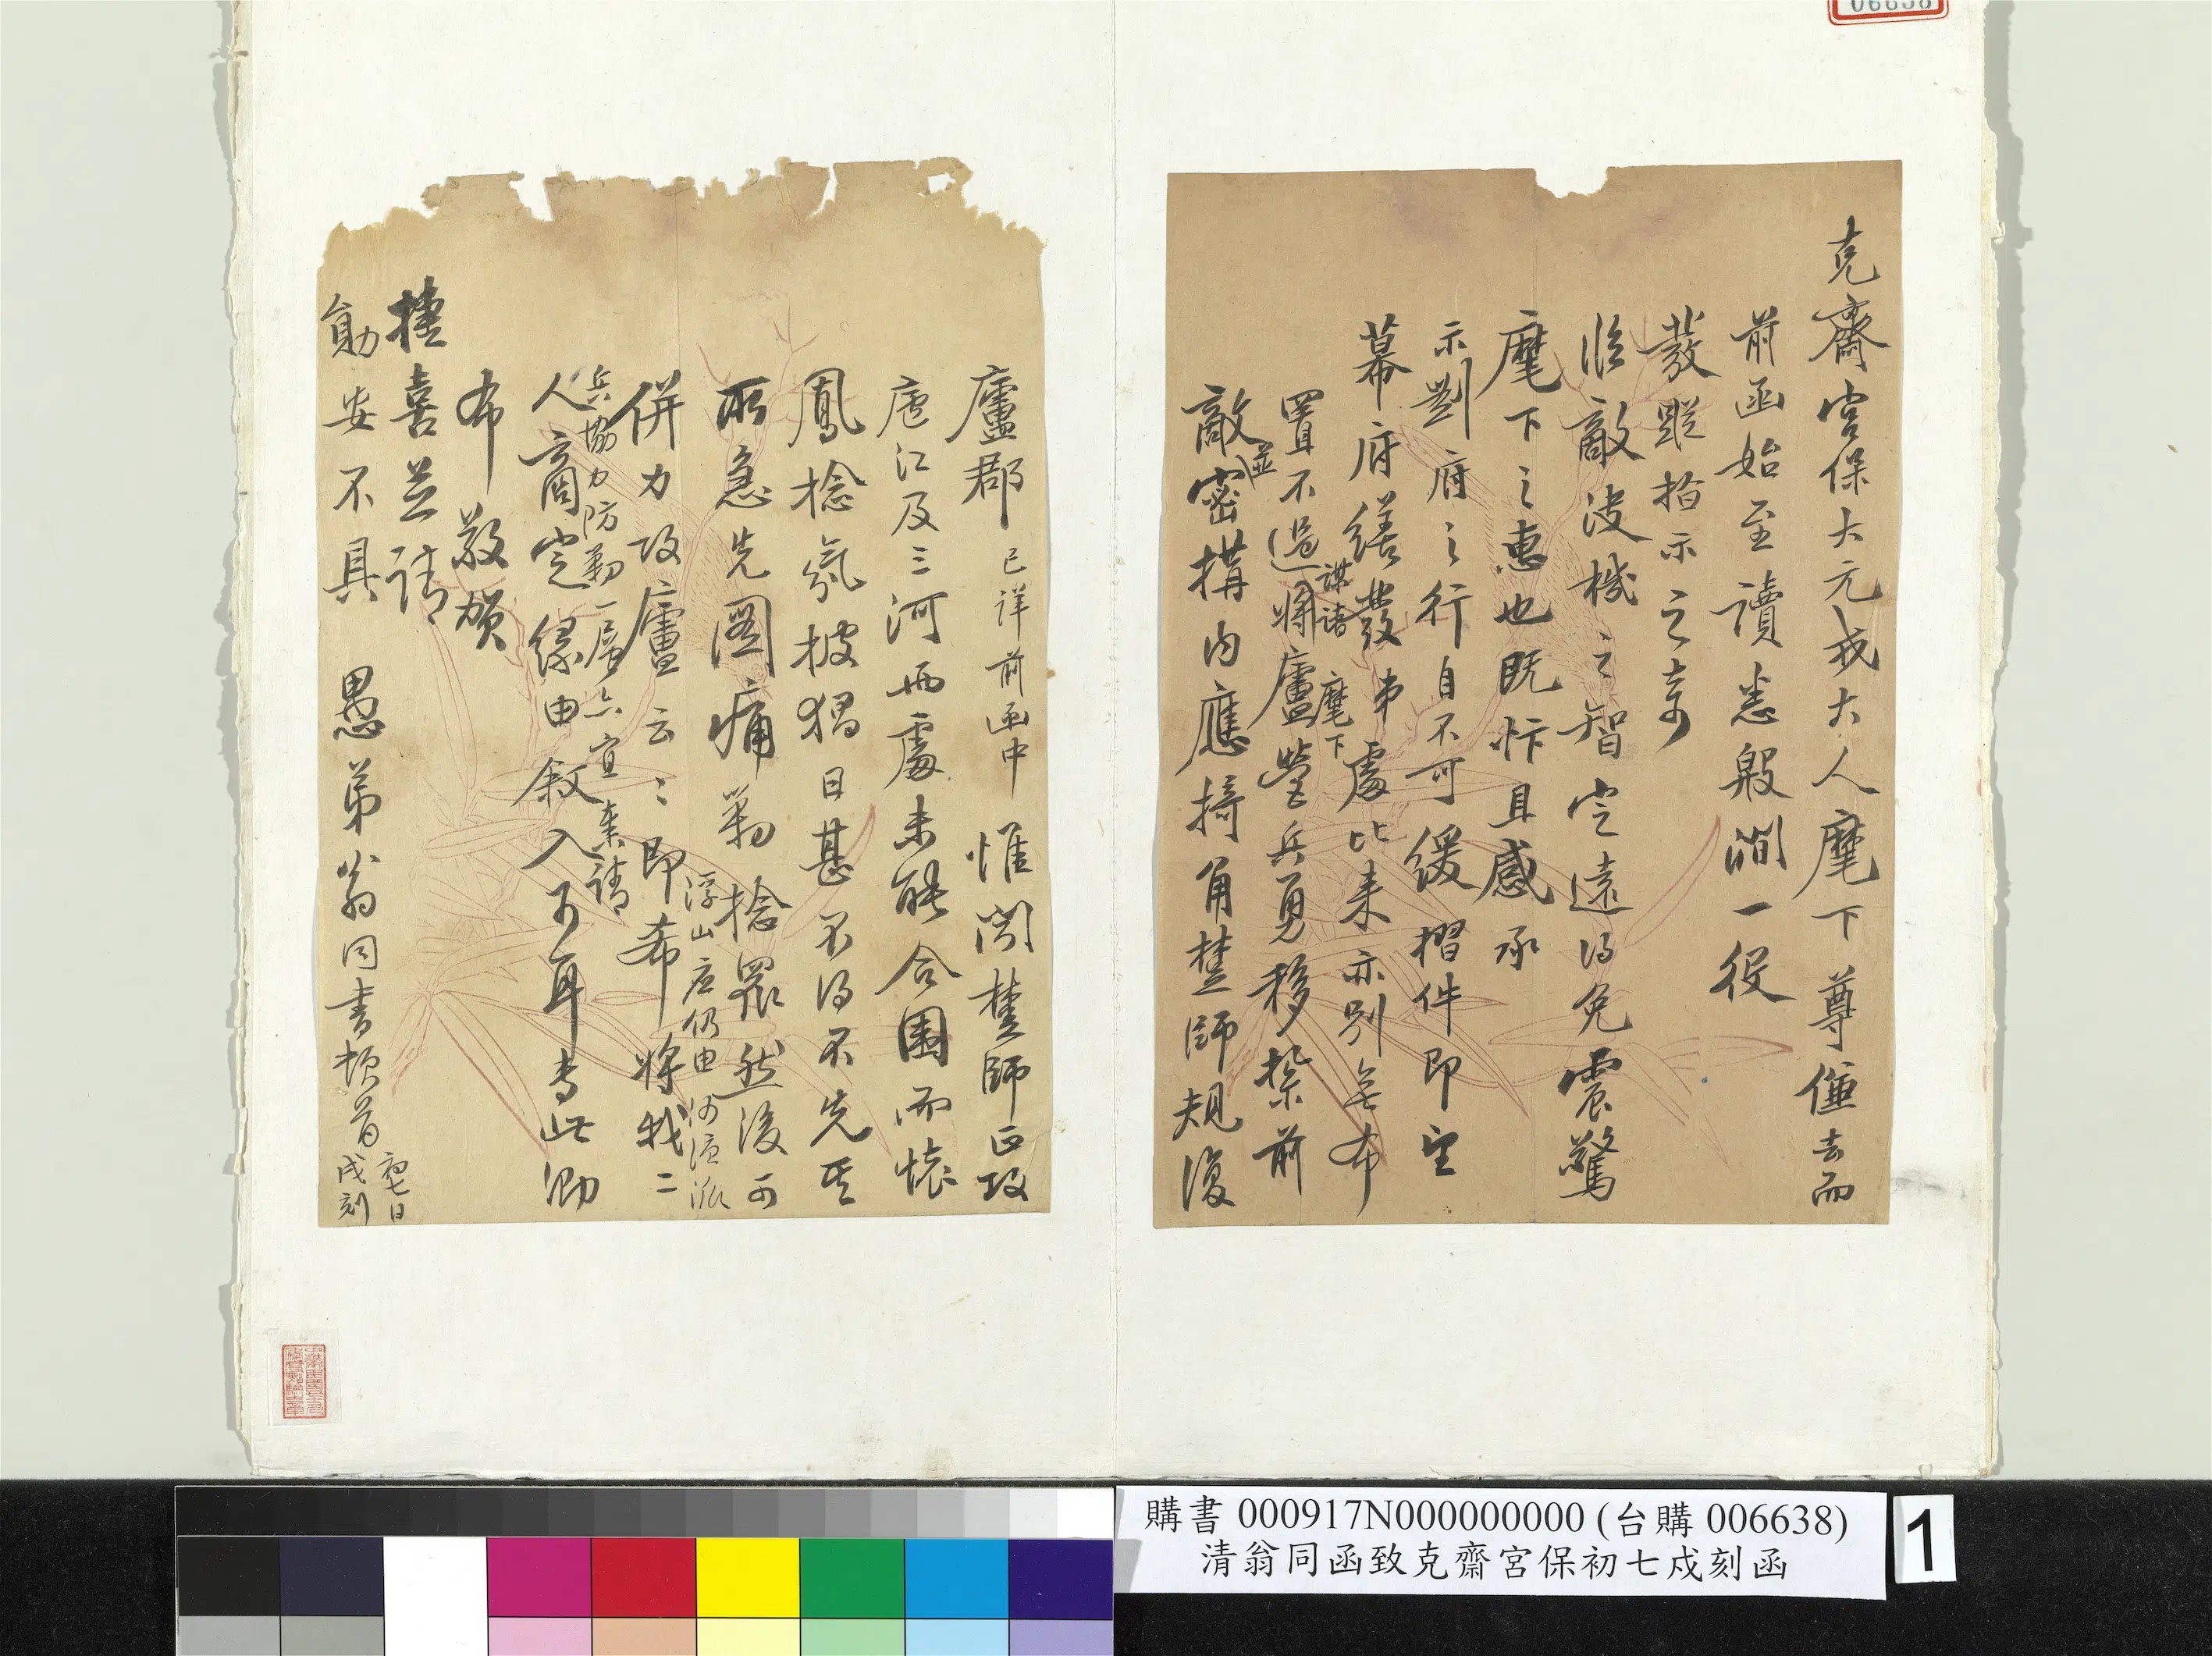 06638
克齋宮保大元戎大人麾下尊僱去而
前函始至讀悉殷澗一役
發蹤指示之奇
臨敵決機之智定遠得免震驚
麾下之惠也既忭且感承
示劉府之行自不可緩摺件即望
幕府繕發弟處比來亦別無布
謀諸麾下
置不過將廬營兵勇移紮前
並
敵密搆內應掎角楚師規復
廬郡已詳前函中惟聞楚師正攻
廬江及三河兩處未能合圍而懷
鳳捻氛披猖日甚不得不先其
所急先圖痛剿捻眾然後可
浮山應仍由
併力攻廬云云即希將我二
兵協力防剿一層亦宜奏請
人商定緣由敘入可耳專此泐
布敬賀
捷喜並請
勛安不具 愚弟翁同書頓首
初七日
戌刻
購書 000917N000000000 (台購 006638)
清翁同函致克齋宮保初七戍刻函
1